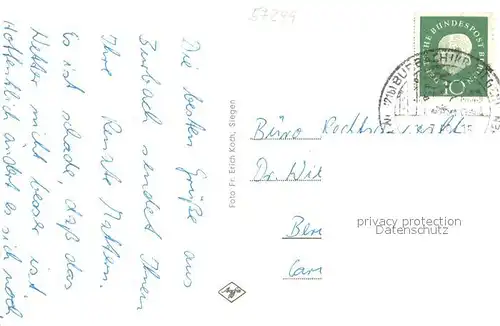 57244
Die besten Grüße aus
Burbach sendet Ihnen
Ihre Renate Mattern.
Es ist schade, daß das
Wetter nicht besser ist.
Hoffentlich ändert es sich noch.
Foto Fr. Erich Koch, Siegen
Agfa
DEUTSCHE BUNDESPOST BERLIN
10
BURBACH (KR. SIEGEN)
Büro Rechtsanwalt
Dr. Wil
Ber
Car
privacy protection
Datenschutz